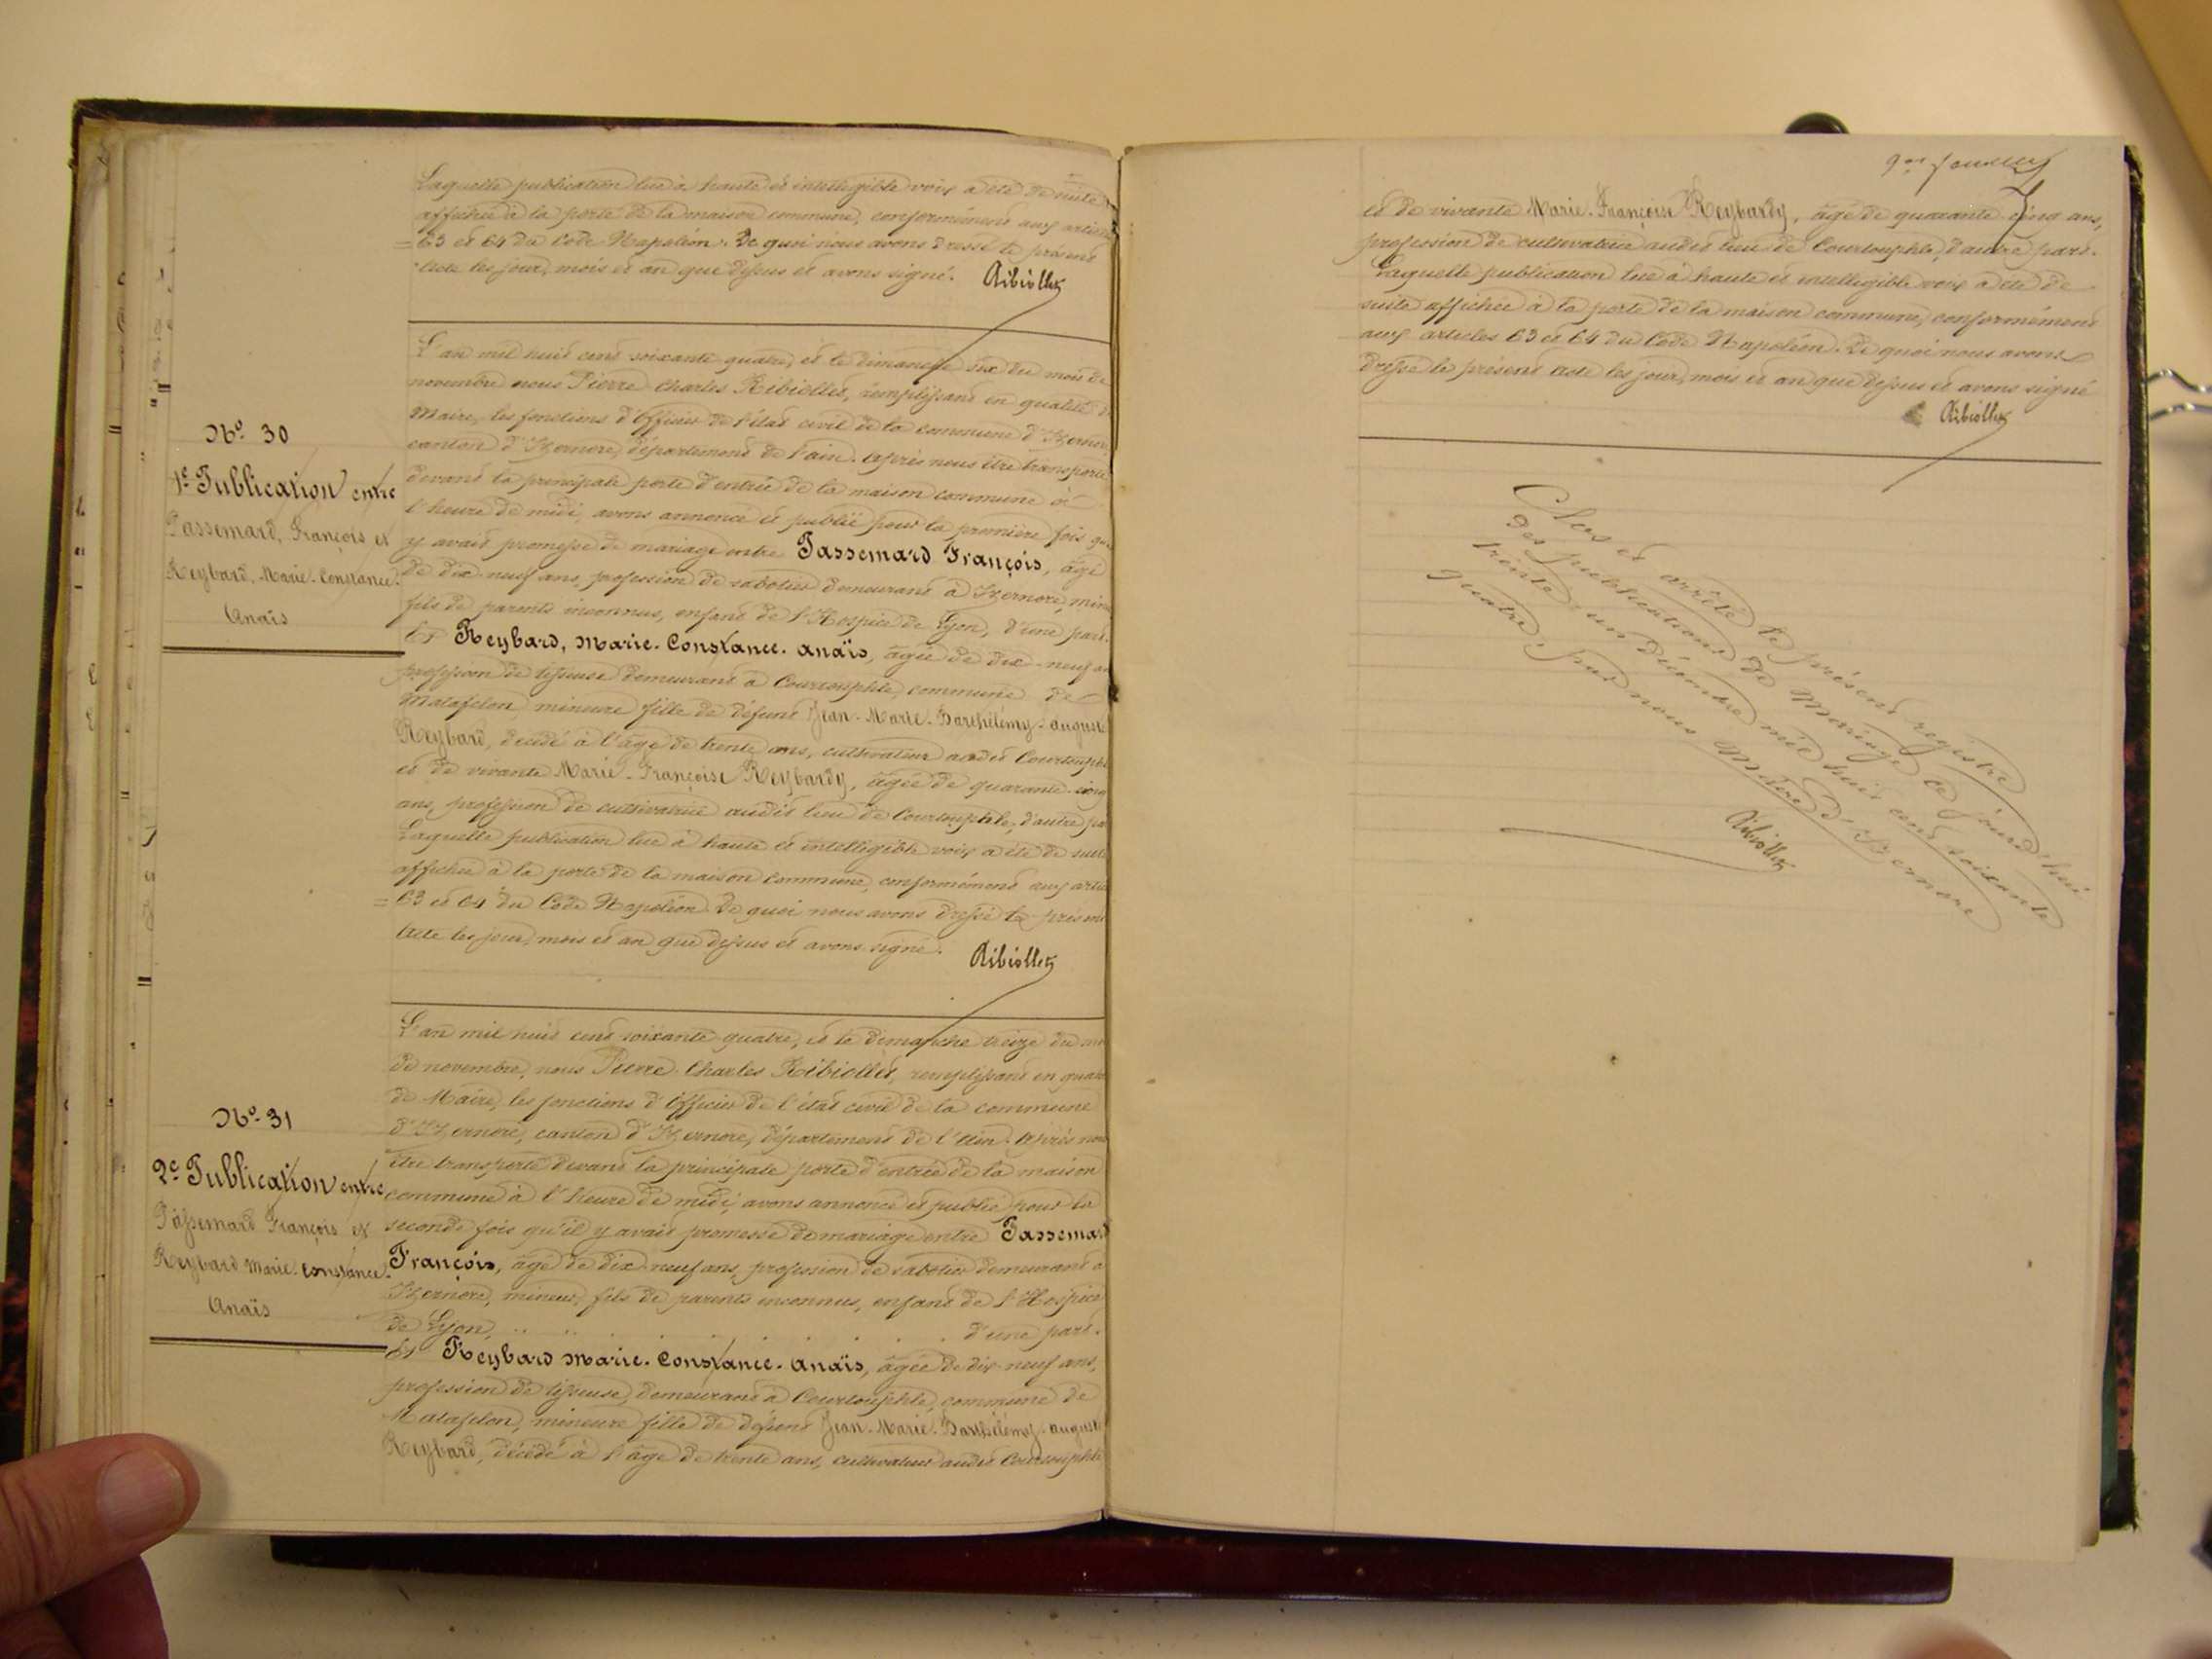 Laquelle publication lue à haute et intelligible voix a été de suite
affichée à la porte de la maison commune, conformément aux articles
= 63 et 64 du Code Napoléon. De quoi nous avons dressé le présent
acte les jour, mois et an que dessus et avons signé. Ribiollet
N° 30
1e Publication entre
Passemard, François et
Reybard, Marie-Constance-
Anaïs
L'an mil huit cent soixante quatre, et le dimanche six du mois de
novembre nous Pierre Charles Ribiollet, remplissant en qualité de
Maire, les fonctions d'Officier de l'état civil de la commune d'Izernore
canton d'Izernore, département de l'ain. Après nous être transporté
devant la principale porte d'entrée de la maison commune à
l'heure de midi, avons annoncé et publié pour la première fois qu
y avait promesse de mariage entre Passemard François, âgé
de dix-neuf ans, profession de sabotier demeurant à Izernore, mineur
fils de parents inconnus, enfant de l'Hospice de Lyon, d'une part.
Et Reybard, Marie-Constance-Anaïs, âgée de dix-neuf an
profession de tisseuse demeurant à Courtouphle, commune de
Matafelon, mineure fille de défunt Jean-Marie-Barthélémy-auguste
Reybard, décédé à l'âge de trente ans, cultivateur audit Courtouphle
et de vivante Marie-Françoise Reybardy, âgée de quarante-cinq
ans, profession de cultivatrice audit lieu de Courtouphle, d'autre pa
Laquelle publication lue à haute et intelligible voix a été de suite
affichée à la porte de la maison commune, conformément aux artic
= 63 et 64 du Code Napoléon. De quoi nous avons dressé le présent
Acte les jour, mois et an que dessus et avons signé.
Ribiollet
N° 31
2e Publication entre
Passemard François et
Reybard Marie-Constance-
Anaïs
L'an mil huit cent soixante quatre, et le dimanche treize du mo
de novembre, nous Pierre-Charles Ribiollet, remplissant en qualité
de Maire, les fonctions d'Officier de l'état civil de la commune
d'Izernore, canton d'Izernore, département de l'Ain. Après nous
être transporté devant la principale porte d'entrée de la maison
commune à l'heure de midi, avons annoncé et publié pour la
seconde fois qu'il y avait promesse de mariage entre Passemard
François, âgé de dix neuf ans, profession de sabotier demeurant à
Izernore, mineur, fils de parents inconnus, enfant de l'Hospice
de Lyon, d'une part.
Et Reybard Marie-Constance-Anaïs, âgée de dix-neuf ans,
profession de tisseuse, demeurant à Courtouphle, commune de
Matafelon, mineure fille de défunt Jean-Marie-Barthélémy-auguste
Reybard, décédé à l'âge de trente ans, cultivateur audit Courtouphle
et de vivante Marie-Françoise Reybardy, âgé de quarante-cinq ans,
profession de cultivatrice audit lieu de Courtouphle, d'autre part.
Laquelle publication lue à haute et intelligible voix a été de
suite affichée à la porte de la maison commune, conformément
aux articles 63 et 64 du Code Napoléon. De quoi nous avons
dressé le présent acte les jour, mois et an que dessus et avons signé
Ribiollet
Clos et arrêté le présent registre
des publications de mariage ce jourd'hui
trente un décembre mil huit cent soixante
quatre par nous Maire d'Izernore
Ribiollet